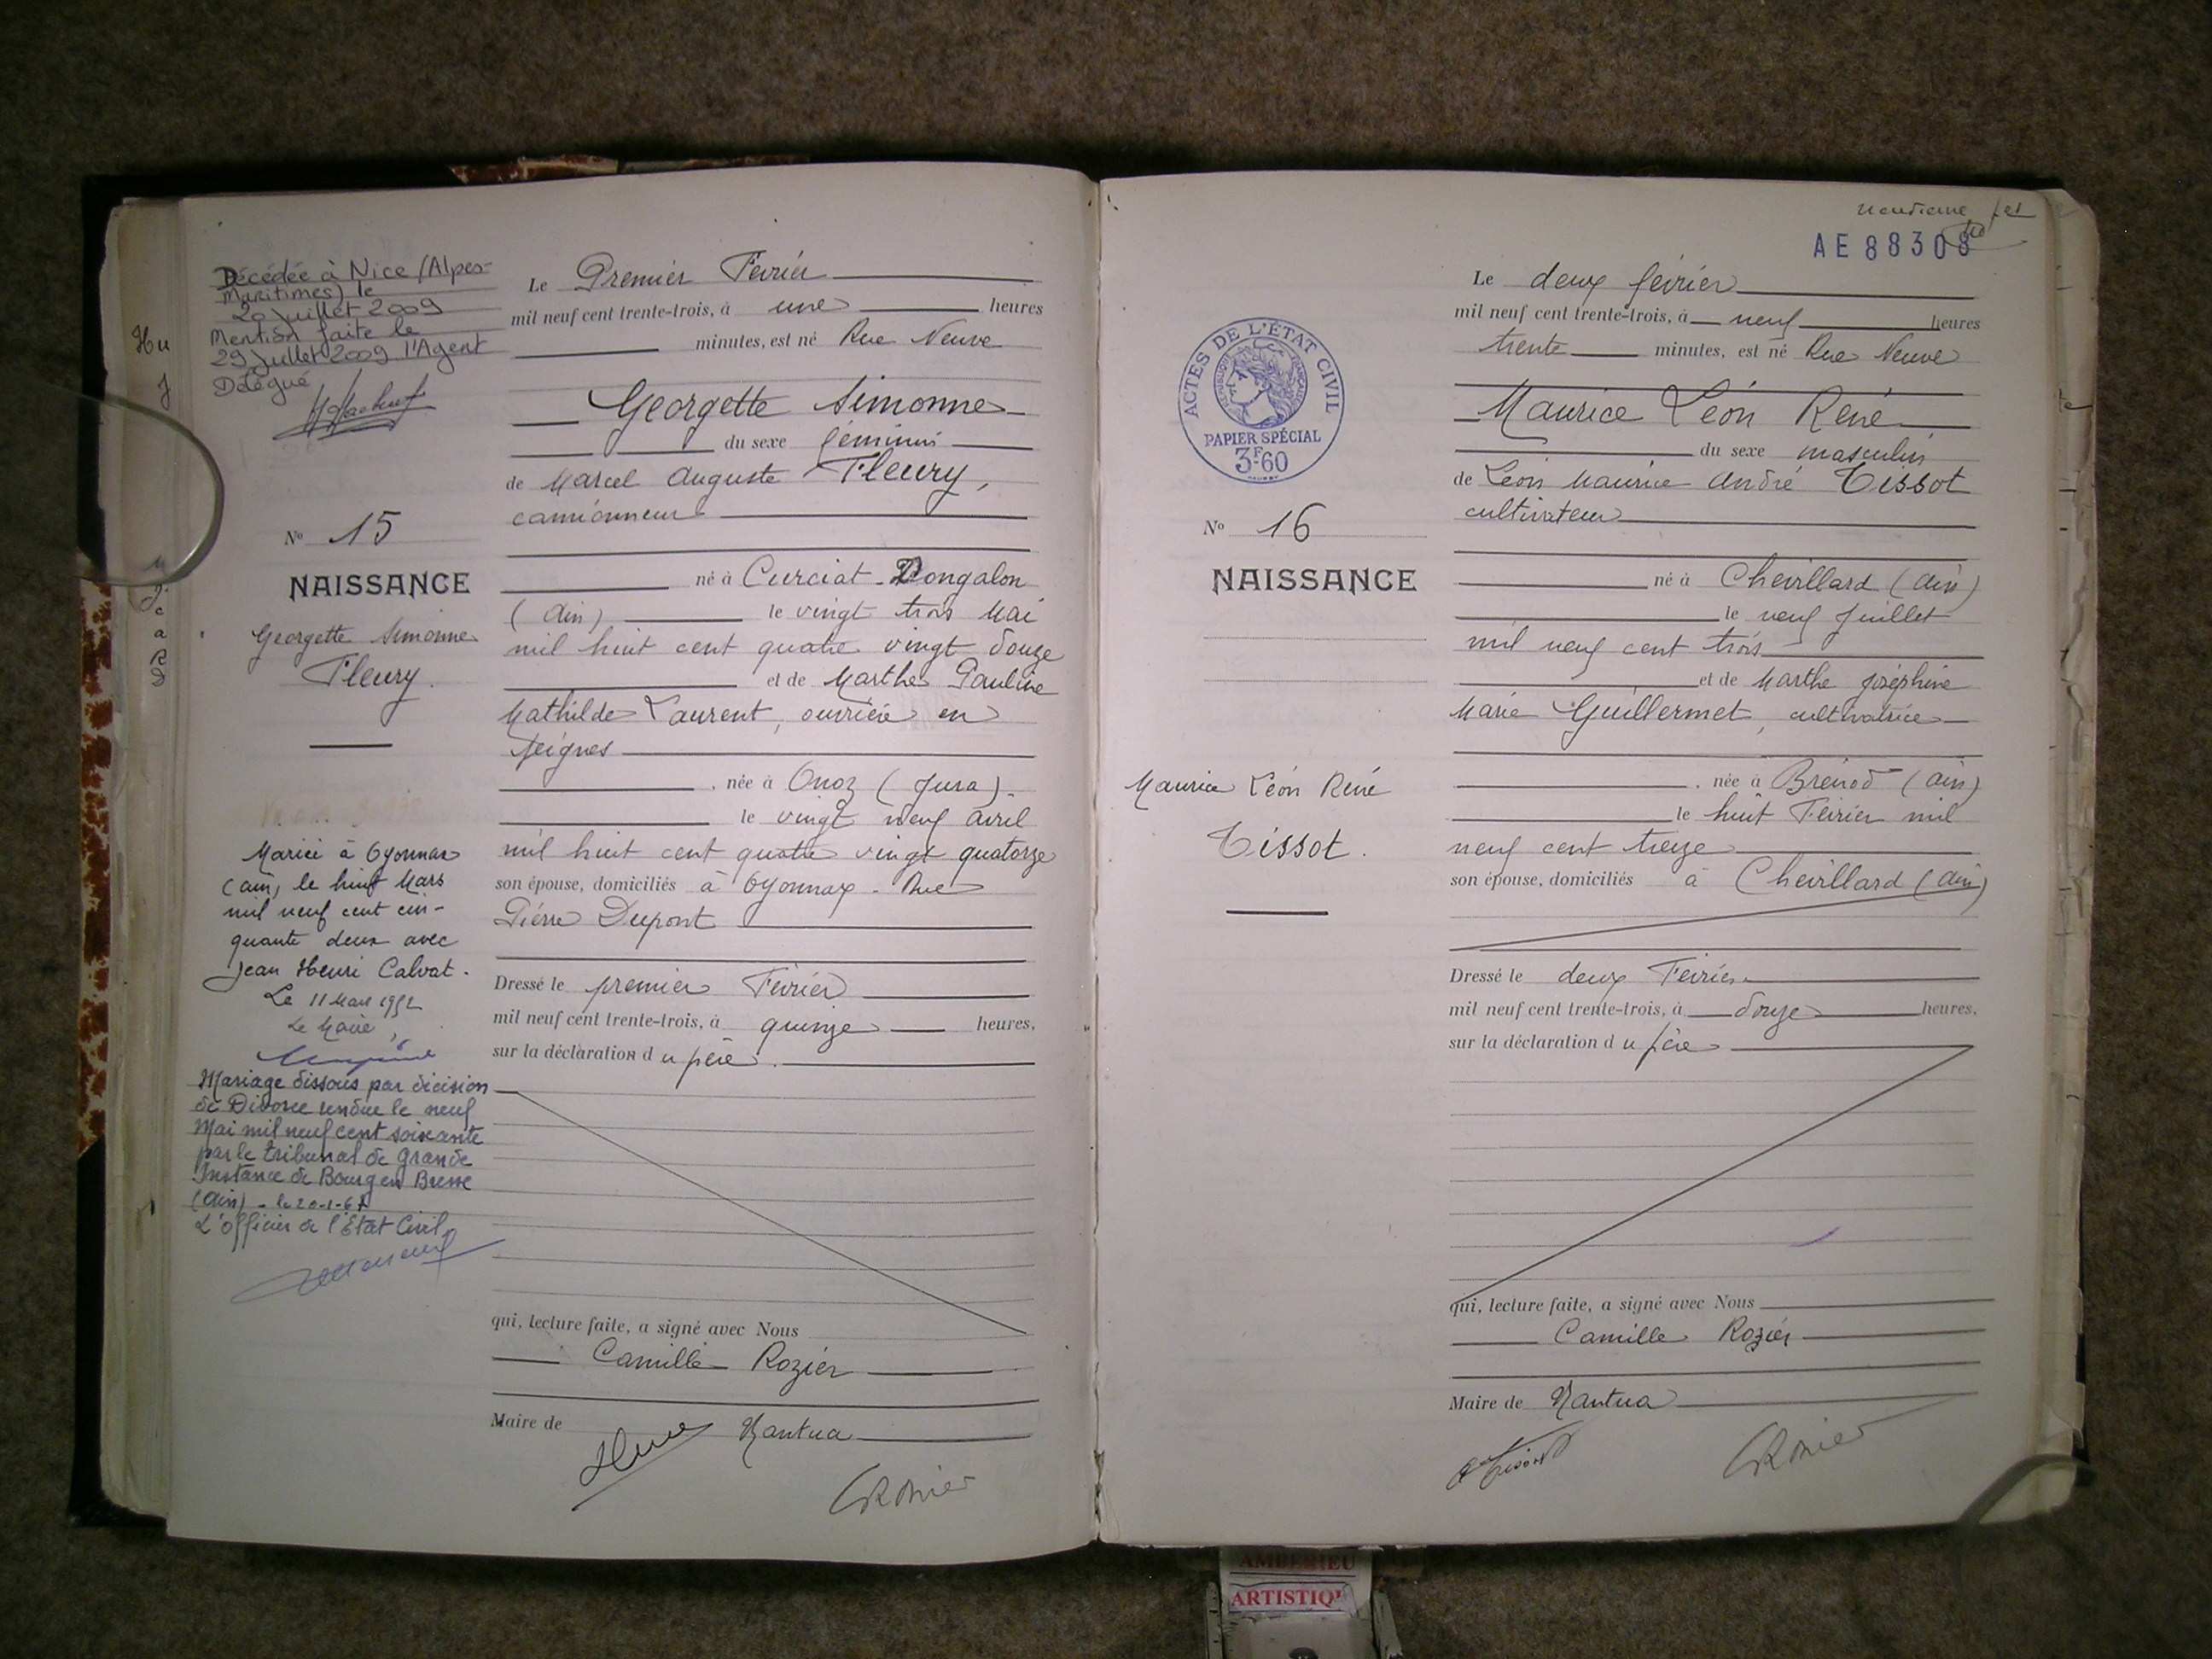 Décédée à Nice (Alpes-
Maritimes) le
20 juillet 2009
Mention faite le
29 juillet 2009 l'Agent
Délégué
Hu
N° 15
NAISSANCE
Georgette Simonne
Fleury.
Marié à Oyonnax
(Ain) le huit Mars
mil neuf cent cin-
quante deux avec
Jean Henri Calvat.
Le 11 Mars 1952
Le Maire,
Mariage dissous par décision
de Divorce rendue le neuf
Mai mil neuf cent soixante
par le tribunal de Grande
Instance de Bourg en Bresse
(Ain) - le 20-1-61
L'officier de l'Etat Civil
Le Premier Février
mil neuf cent trente-trois, à une heures
minutes, est né Rue Neuve
Georgette Simonne
du sexe féminin
de Marcel Auguste Fleury,
camionneur
né à Curciat-Dongalon
(Ain) le vingt trois Mai
mil huit cent quatre vingt douze
et de Marthe Pauline
Mathilde Laurent, ouvrière en
peignes
née à Onoz (Jura).
le vingt neuf avril
mil huit cent quatre vingt quatorze
son épouse, domiciliés à Oyonnax - Rue
Pierre Dupont
Dressé le premier Février
mil neuf cent trente-trois, à quinze heures,
sur la déclaration du père.
qui, lecture faite, a signé avec Nous
Camille Rozier
Maire de Nantua
CRozier
AE 88308
ACTES DE L'ÉTAT CIVIL
RÉPUBLIQUE FRANÇAISE
PAPIER SPÉCIAL
3F60
N° 16
NAISSANCE
Maurice Léon René
Tissot.
Le deux février
mil neuf cent trente-trois, à neuf heures
trente minutes, est né Rue Neuve
Maurice Léon René
du sexe masculin
de Léon Maurice André Tissot
cultivateur
né à Chevillard (Ain)
le neuf Juillet
mil neuf cent trois
et de Marthe Joséphine
Marie Guillermet, cultivatrice
née à Brénod (Ain)
le huit Février mil
neuf cent treize
son épouse, domiciliés à Chevillard (Ain)
Dressé le deux Février
mil neuf cent trente-trois, à douze heures,
sur la déclaration du père
qui, lecture faite, a signé avec Nous
Camille Rozier
Maire de Nantua
CRozier
AMBERIEU
ARTISTIQU